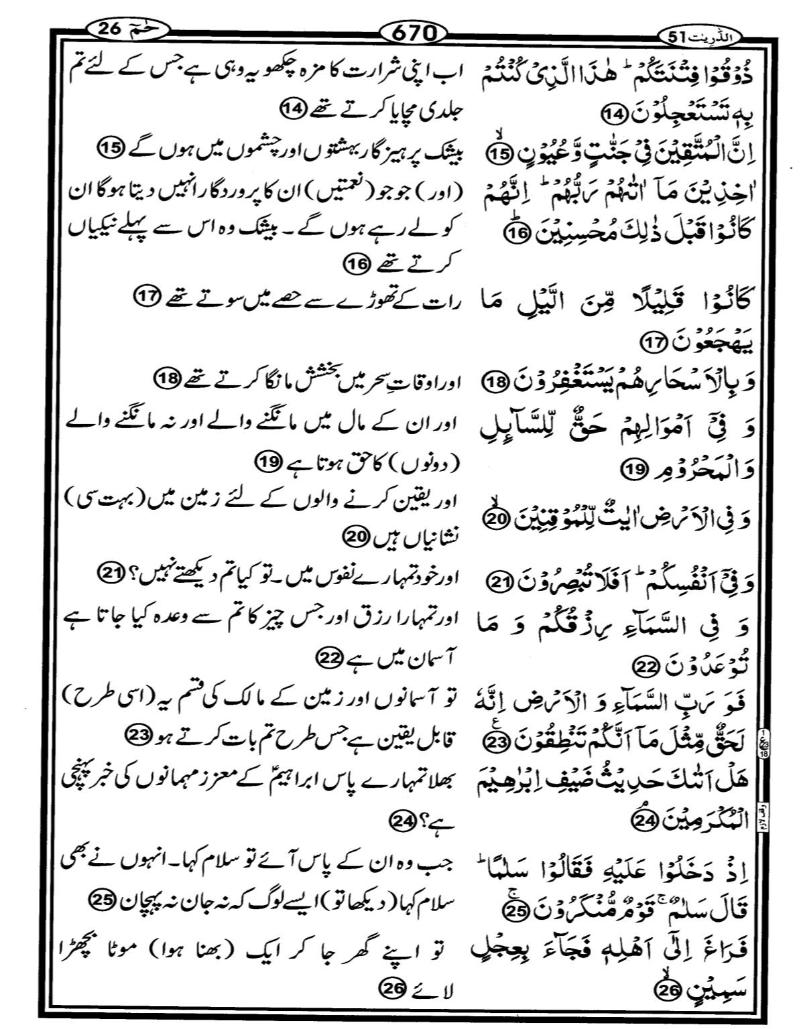 الذّٰریٰت 51
670
حٰمٓ 26
ذُوۡقُوۡا فِتۡنَتَكُمۡ ؕ هٰذَا الَّذِىۡ كُنۡتُمۡ
بِهٖ تَسۡتَعۡجِلُوۡنَ ⑭
اِنَّ الۡمُتَّقِيۡنَ فِىۡ جَنّٰتٍ وَّعُيُوۡنٍ ۙ ⑮
اٰخِذِيۡنَ مَاۤ اٰتٰٮهُمۡ رَبُّهُمۡ ؕ اِنَّهُمۡ
كَانُوۡا قَبۡلَ ذٰلِكَ مُحۡسِنِيۡنَ ؕ ⑯
كَانُوۡا قَلِيۡلًا مِّنَ الَّيۡلِ مَا
يَهۡجَعُوۡنَ ⑰
وَبِالۡاَسۡحَارِ هُمۡ يَسۡتَغۡفِرُوۡنَ ⑱
وَ فِىۡۤ اَمۡوَالِهِمۡ حَقٌّ لِّلسَّآٮِٕلِ
وَالۡمَحۡرُوۡمِ ⑲
وَفِى الۡاَرۡضِ اٰيٰتٌ لِّلۡمُوۡقِنِيۡنَ ۙ ⑳
وَفِىۡۤ اَنۡفُسِكُمۡ ؕ اَفَلَا تُبۡصِرُوۡنَ ㉑
وَ فِى السَّمَآءِ رِزۡقُكُمۡ وَ مَا
تُوۡعَدُوۡنَ ㉒
فَوَ رَبِّ السَّمَآءِ وَ الۡاَرۡضِ اِنَّهٗ
لَحَقٌّ مِّثۡلَ مَاۤ اَنَّكُمۡ تَنۡطِقُوۡنَ ؏ ㉓
هَلۡ اَتٰٮكَ حَدِيۡثُ ضَيۡفِ اِبۡرٰهِيۡمَ
الۡمُكۡرَمِيۡنَ ۘ ㉔
اِذۡ دَخَلُوۡا عَلَيۡهِ فَقَالُوۡا سَلٰمًا ؕ
قَالَ سَلٰمٌ ۚ قَوۡمٌ مُّنۡكَرُوۡنَ ۚ ㉕
فَرَاغَ اِلٰٓى اَهۡلِهٖ فَجَآءَ بِعِجۡلٍ
سَمِيۡنٍ ۙ ㉖
اب اپنی شرارت کا مزہ چکھو یہ وہی ہے جس کے لئے تم
جلدی مچایا کرتے تھے ⑭
بیشک پرہیزگار بہشتوں اور چشموں میں ہوں گے ⑮
(اور) جو جو (نعمتیں) ان کا پروردگار انہیں دیتا ہوگا ان
کو لے رہے ہوں گے۔ بیشک وہ اس سے پہلے نیکیاں
کرتے تھے ⑯
رات کے تھوڑے سے حصے میں سوتے تھے ⑰
اور اوقاتِ سحر میں بخشش مانگا کرتے تھے ⑱
اور ان کے مال میں مانگنے والے اور نہ مانگنے والے
(دونوں) کا حق ہوتا ہے ⑲
اور یقین کرنے والوں کے لئے زمین میں (بہت سی)
نشانیاں ہیں ⑳
اور خود تمہارے نفوس میں۔ تو کیا تم دیکھتے نہیں؟ ㉑
اور تمہارا رزق اور جس چیز کا تم سے وعدہ کیا جاتا ہے
آسمان میں ہے ㉒
تو آسمانوں اور زمین کے مالک کی قسم یہ (اسی طرح)
قابل یقین ہے جس طرح تم بات کرتے ہو ㉓
بھلا تمہارے پاس ابراہیمؑ کے معزز مہمانوں کی خبر پہنچی
ہے؟ ㉔
جب وہ ان کے پاس آئے تو سلام کہا۔ انہوں نے بھی
سلام کہا (دیکھا تو) ایسے لوگ کہ نہ جان نہ پہچان ㉕
تو اپنے گھر جا کر ایک (بھنا ہوا) موٹا بچھڑا
لائے ㉖
وقف لازم